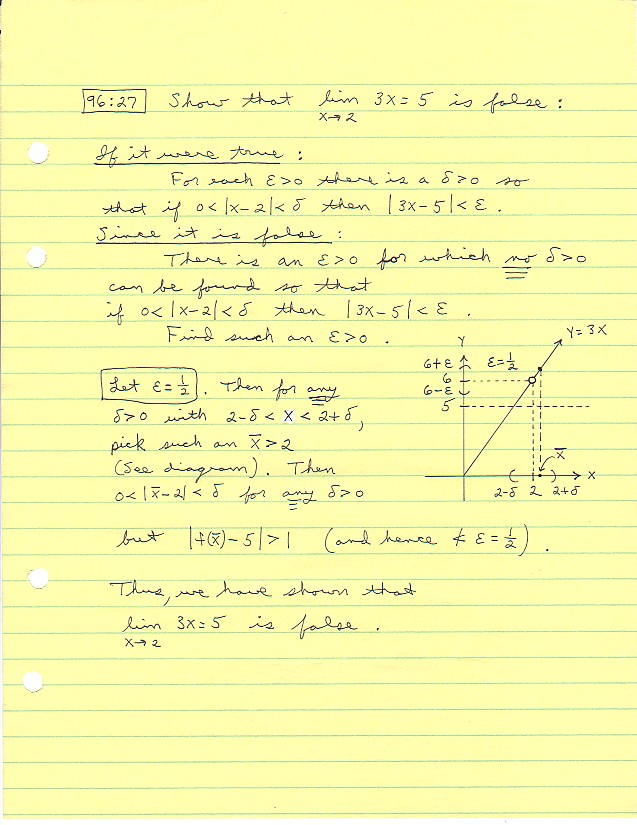 96:27 Show that lim 3x = 5 is false :
x→2
If it were true :
For each ε>0 there is a δ>0 so
that if 0<|x-2|<δ then |3x-5|<ε .
Since it is false :
There is an ε>0 for which no δ>0
can be found so that
if 0<|x-2|<δ then |3x-5|<ε .
Find such an ε>0 .
Let ε=1/2 . Then for any
δ>0 with 2-δ < x < 2+δ,
pick such an x̄>2
(See diagram). Then
0<|x̄-2|<δ for any δ>0
but |f(x̄)-5|>1 (and hence ≮ ε=1/2) .
Thus, we have shown that
lim 3x=5 is false .
x→2
Y
Y=3X
6+ε
ε=1/2
6
6-ε
5
x̄
X
2-δ 2 2+δ